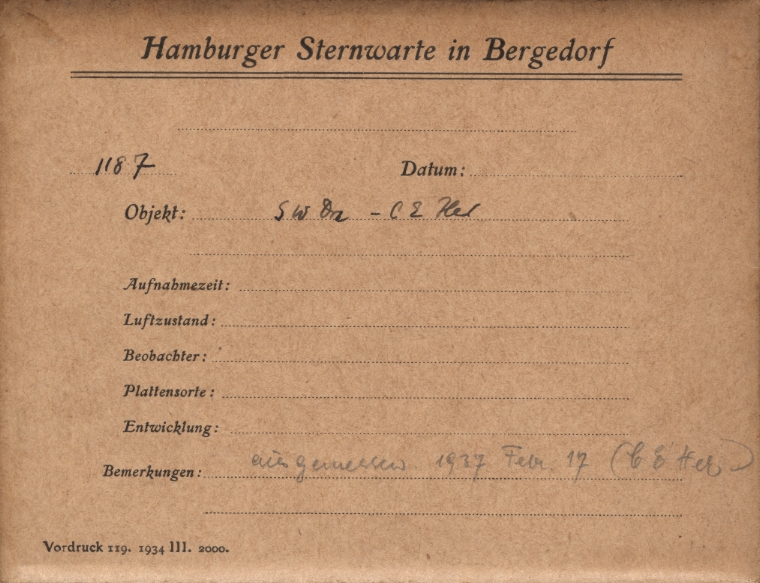 Hamburger Sternwarte in Bergedorf
1187 Datum:
Objekt: SW Dra - CE Her
Aufnahmezeit:
Luftzustand:
Beobachter:
Plattensorte:
Entwicklung:
Bemerkungen: ausgemessen 1937 Febr 17 (CE Her)
Vordruck 119. 1934 III. 2000.